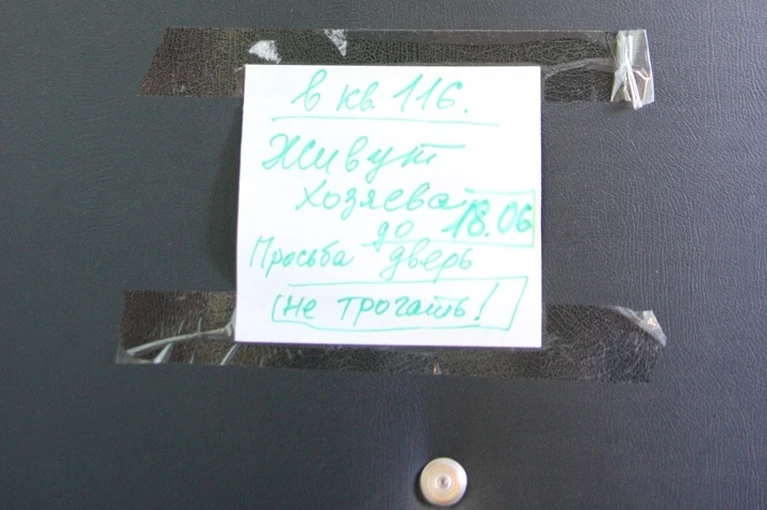 в кв 116.
Живут
хозяева
до 18.06
Просьба дверь
не трогать!